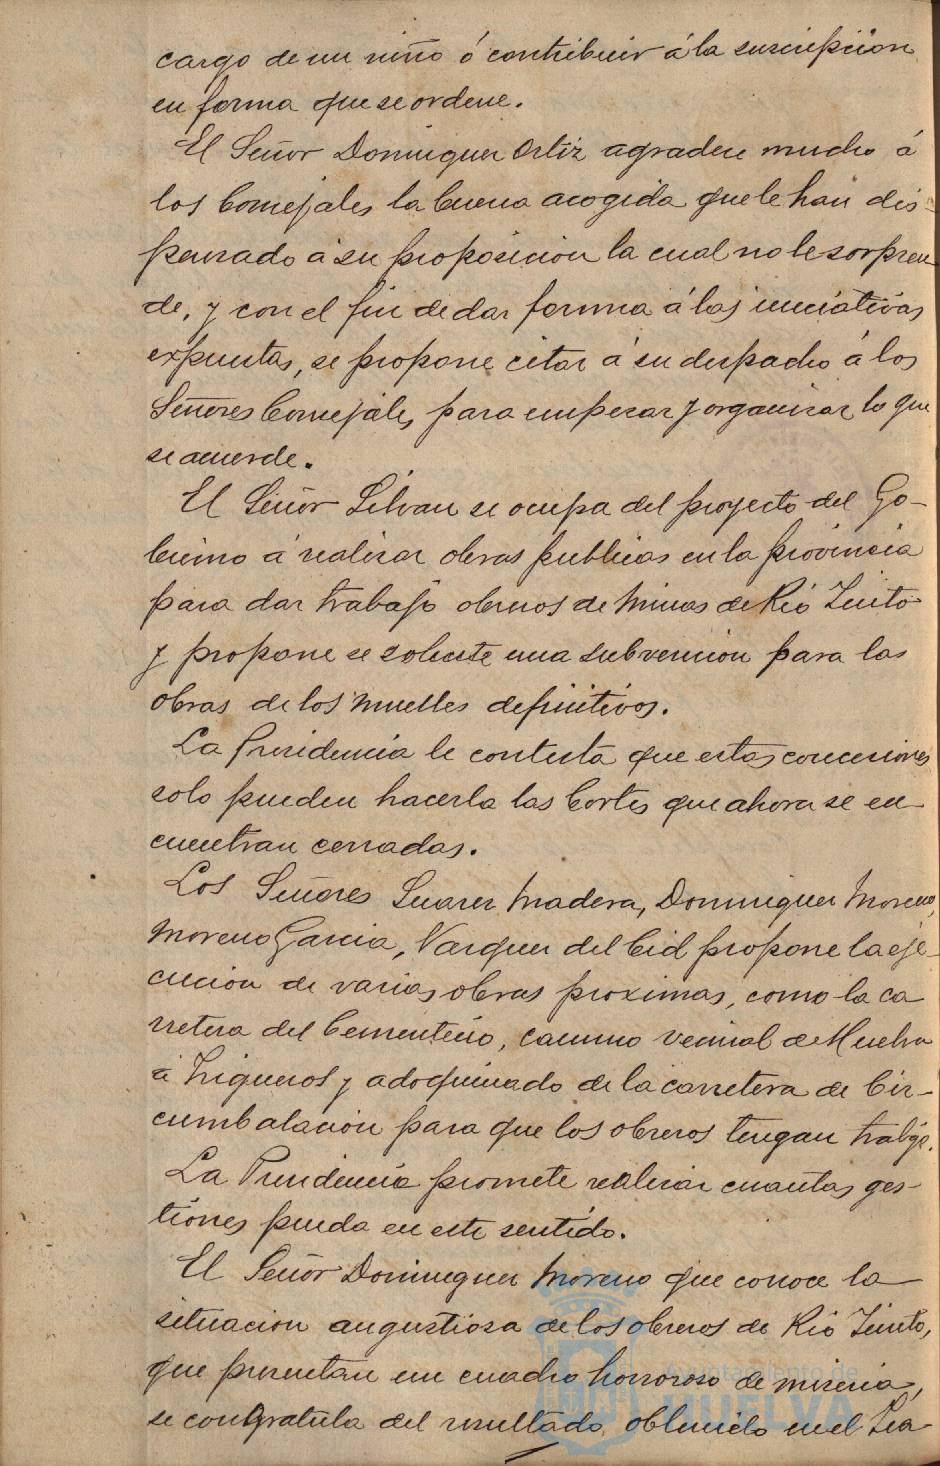 cargo de un niño ó contribuir á la suscripcion
en forma que se ordene.
El Señor Dominguez Ortiz agradece mucho á
los Concejales la buena acogida que le han dis-
pensado á su proposicion la cual no le sorpren
de, y con el fin de dar forma á las iniciativas
expuestas, se propone citar á su despacho á los
Señores Concejales para empezar y organizar lo que
se acuerde.
El Señor Silvan se ocupa del proyecto del Go-
bierno á realizar obras publicas en la provincia
para dar trabajo obreros de Minas de Rio Tinto
y propone se solicite una subvencion para las
obras de los muelles definitivos.
La Presidencia le contesta que estas concesiones
solo pueden hacerla las Cortes que ahora se en
cuentran cerradas.
Los Señores Suarez Madera, Dominguez Moreno,
Moreno Garcia, Vazquez del Cid propone la eje-
cucion de varias obras proximas, como la ca
rretera del Cementerio, camino vecinal de Huelva
á Trigueros y adoquinado de la carretera de Cir-
cumbalacion para que los obreros tengan trabajo.
La Presidencia promete realizar cuantas ges-
tiones pueda en este sentido.
El Señor Dominguez Moreno que conoce la
situacion angustiosa de los obreros de Rio Tinto,
que presentan un cuadro horroroso de miseria,
se congratula del resultado obtenido en el Tea
Ayuntamiento de
HUELVA